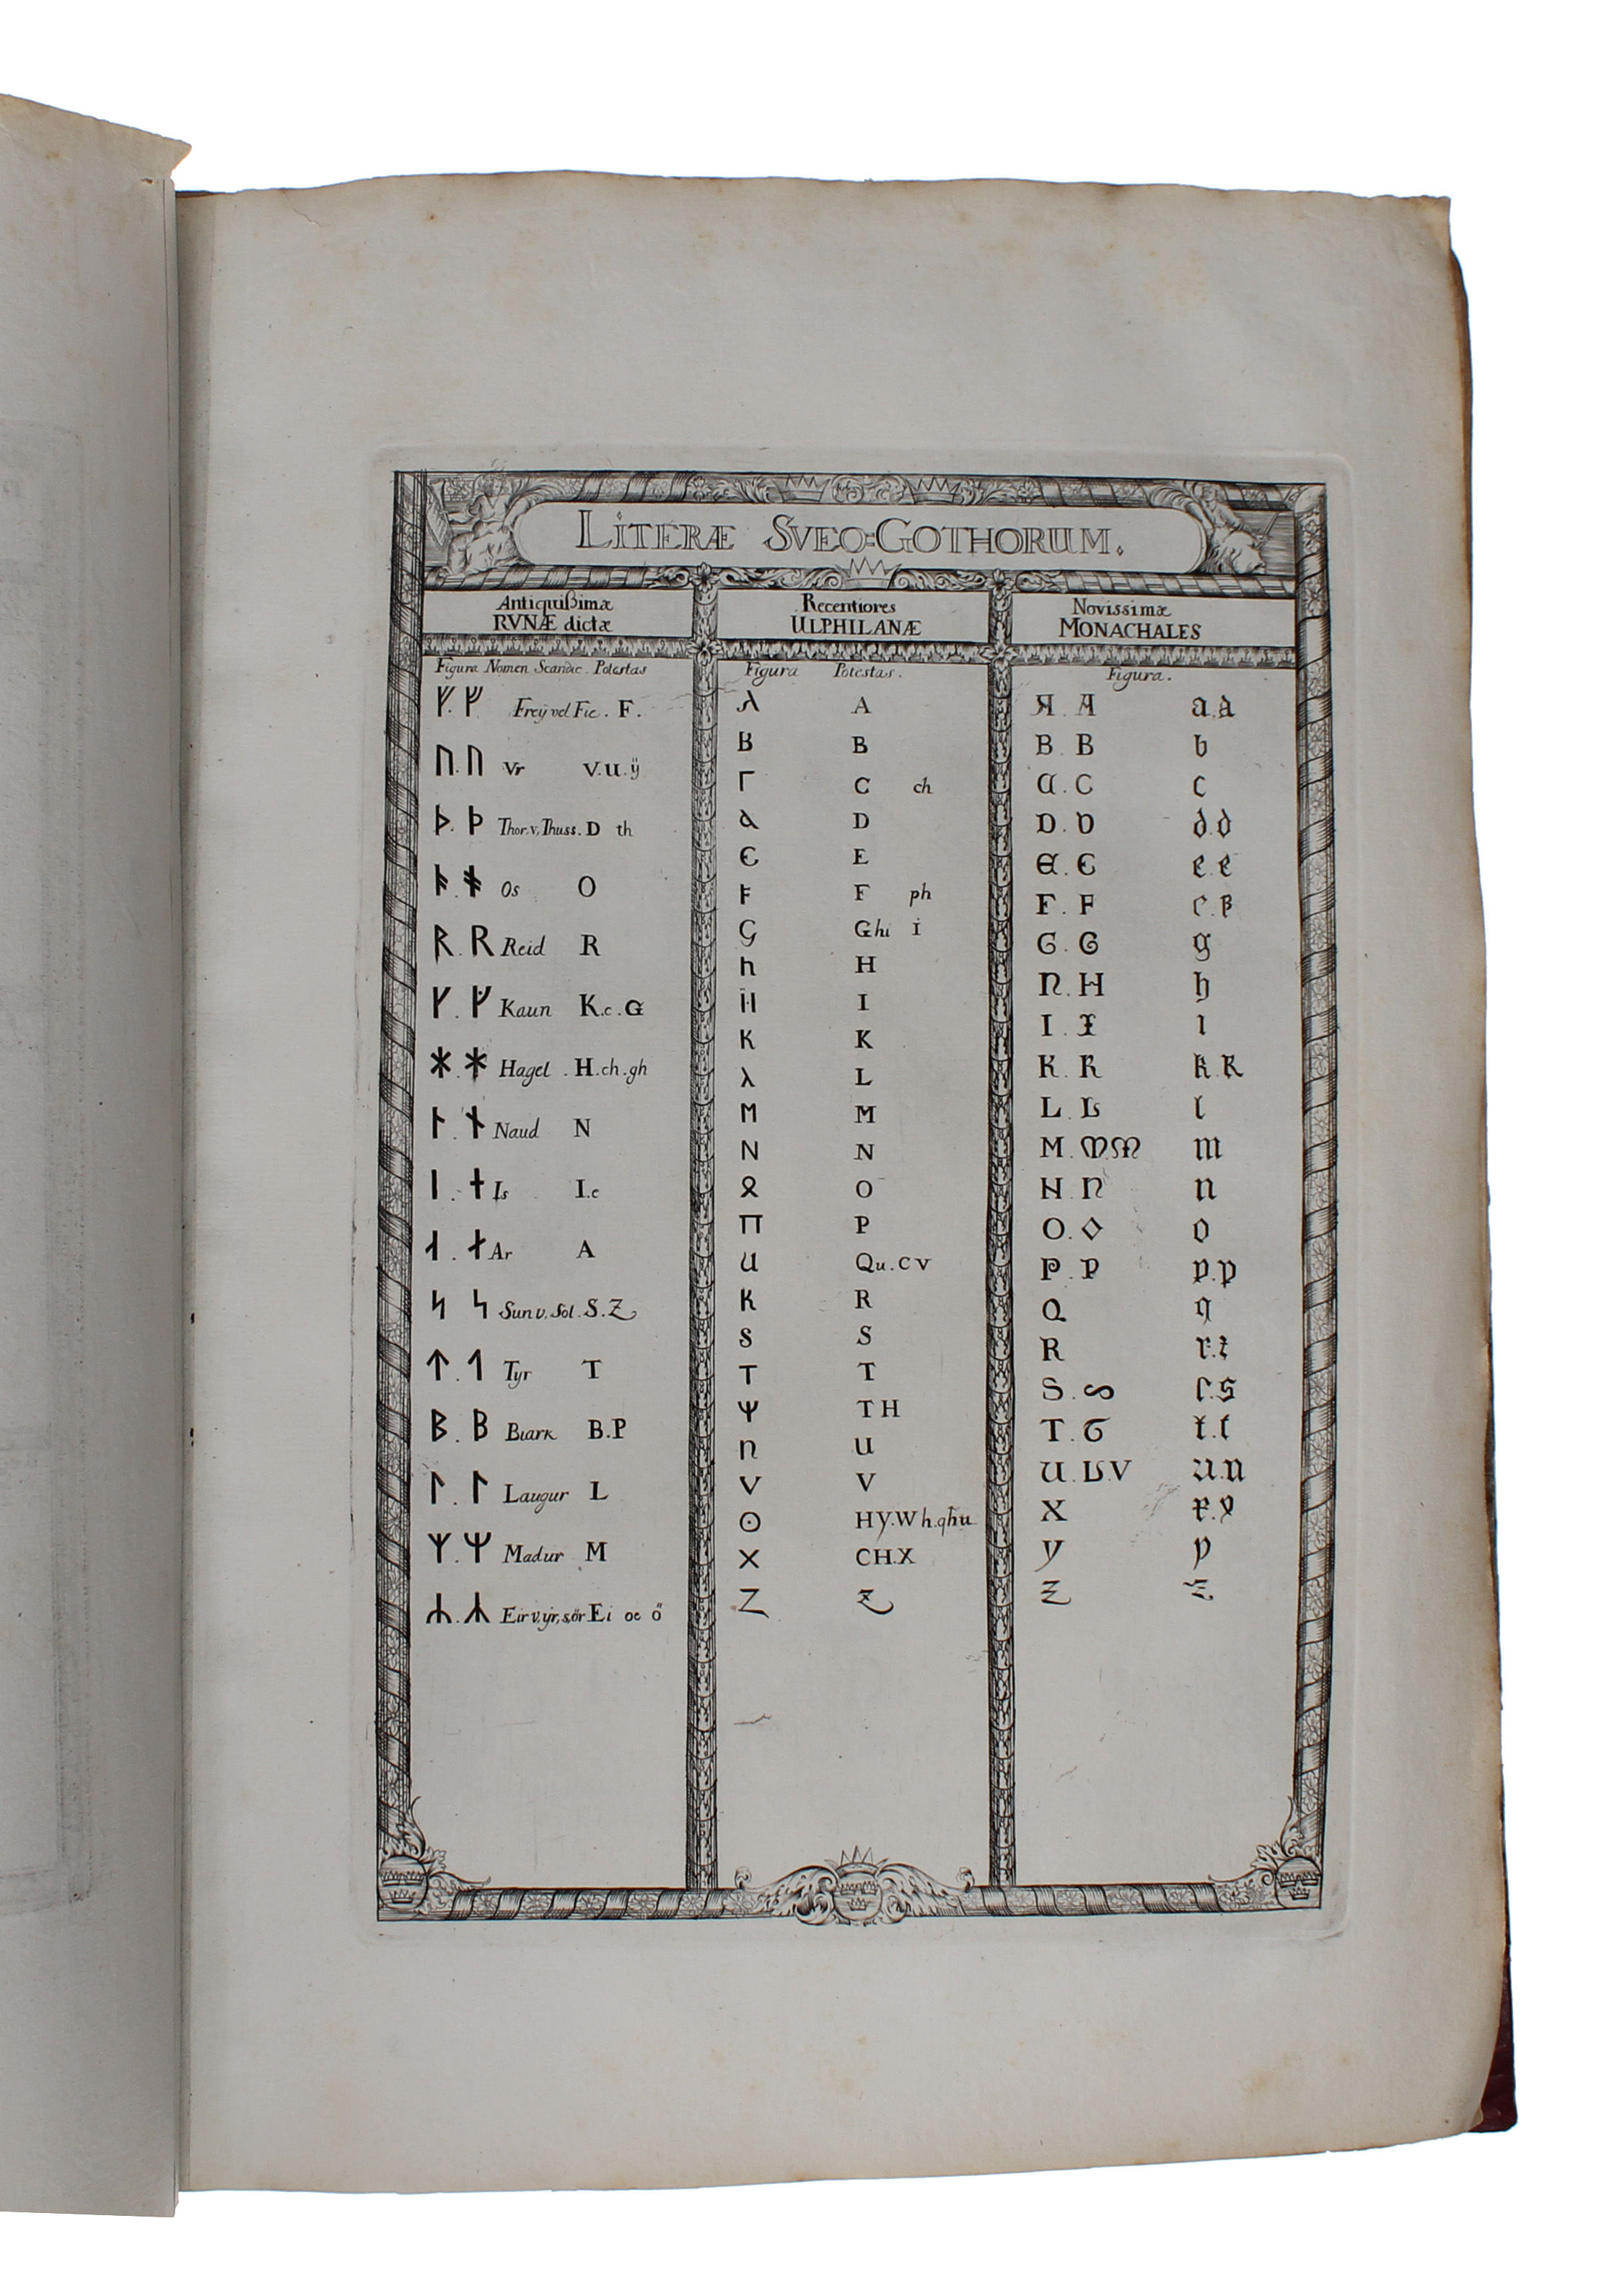 LITERÆ SVEO=GOTHORUM.
Antiquißimæ
RVNÆ dictæ
Figura Nomen Scandic. Potestas
ᚠ. ᚠ Freÿ vel Fie. F.
ᚢ. ᚢ Vr V.U.ÿ
ᚦ. ᚦ Thor.v,Thuss. D th
ᚬ. ᚬ Os O
ᚱ. ᚱ Reid R
ᚴ. ᚵ Kaun K.c.G
ᚼ. ᚼ Hagel. H.ch.gh
ᚿ. ᚾ Naud N
ᛁ. ᚽ Is I.e
ᛆ. ᛅ Ar A
ᛋ ᛋ Sun v, Sol. S.Z
ᛏ. ᛐ Tyr T
ᛒ. ᛒ Biark B.P
ᛚ. ᛚ Laugur L
ᛉ. ᛘ Madur M
ᛦ. ᛦ Eir v.ÿr, s,ör Ei oe ö
Recentiores
ULPHILANÆ
Figura Potestas.
λ A
B B
Γ C ch
a D
Є E
F F ph
G Ghi i
h H
ïI I
K K
λ L
M M
N N
𐍉 O
Π P
U Qu.CV
K R
S S
T T
Ψ TH
n U
V V
ʘ Hy.Wh.qhu
X CH.X
Z Z
Novissimæ
MONACHALES
Figura.
Я. A a.a
B. B b
C. C c
D. D d.d
E. Є e.e
F. F
G. G g
n. H h
I. I ı
K. K k.K
L. L l
M. M M m
N. n n
O. O o
P. P p.p
Q q
R r.ꝛ
S. S ſ.s
T. T t.t
U. U.V u.u
X x.x
y y
Z z